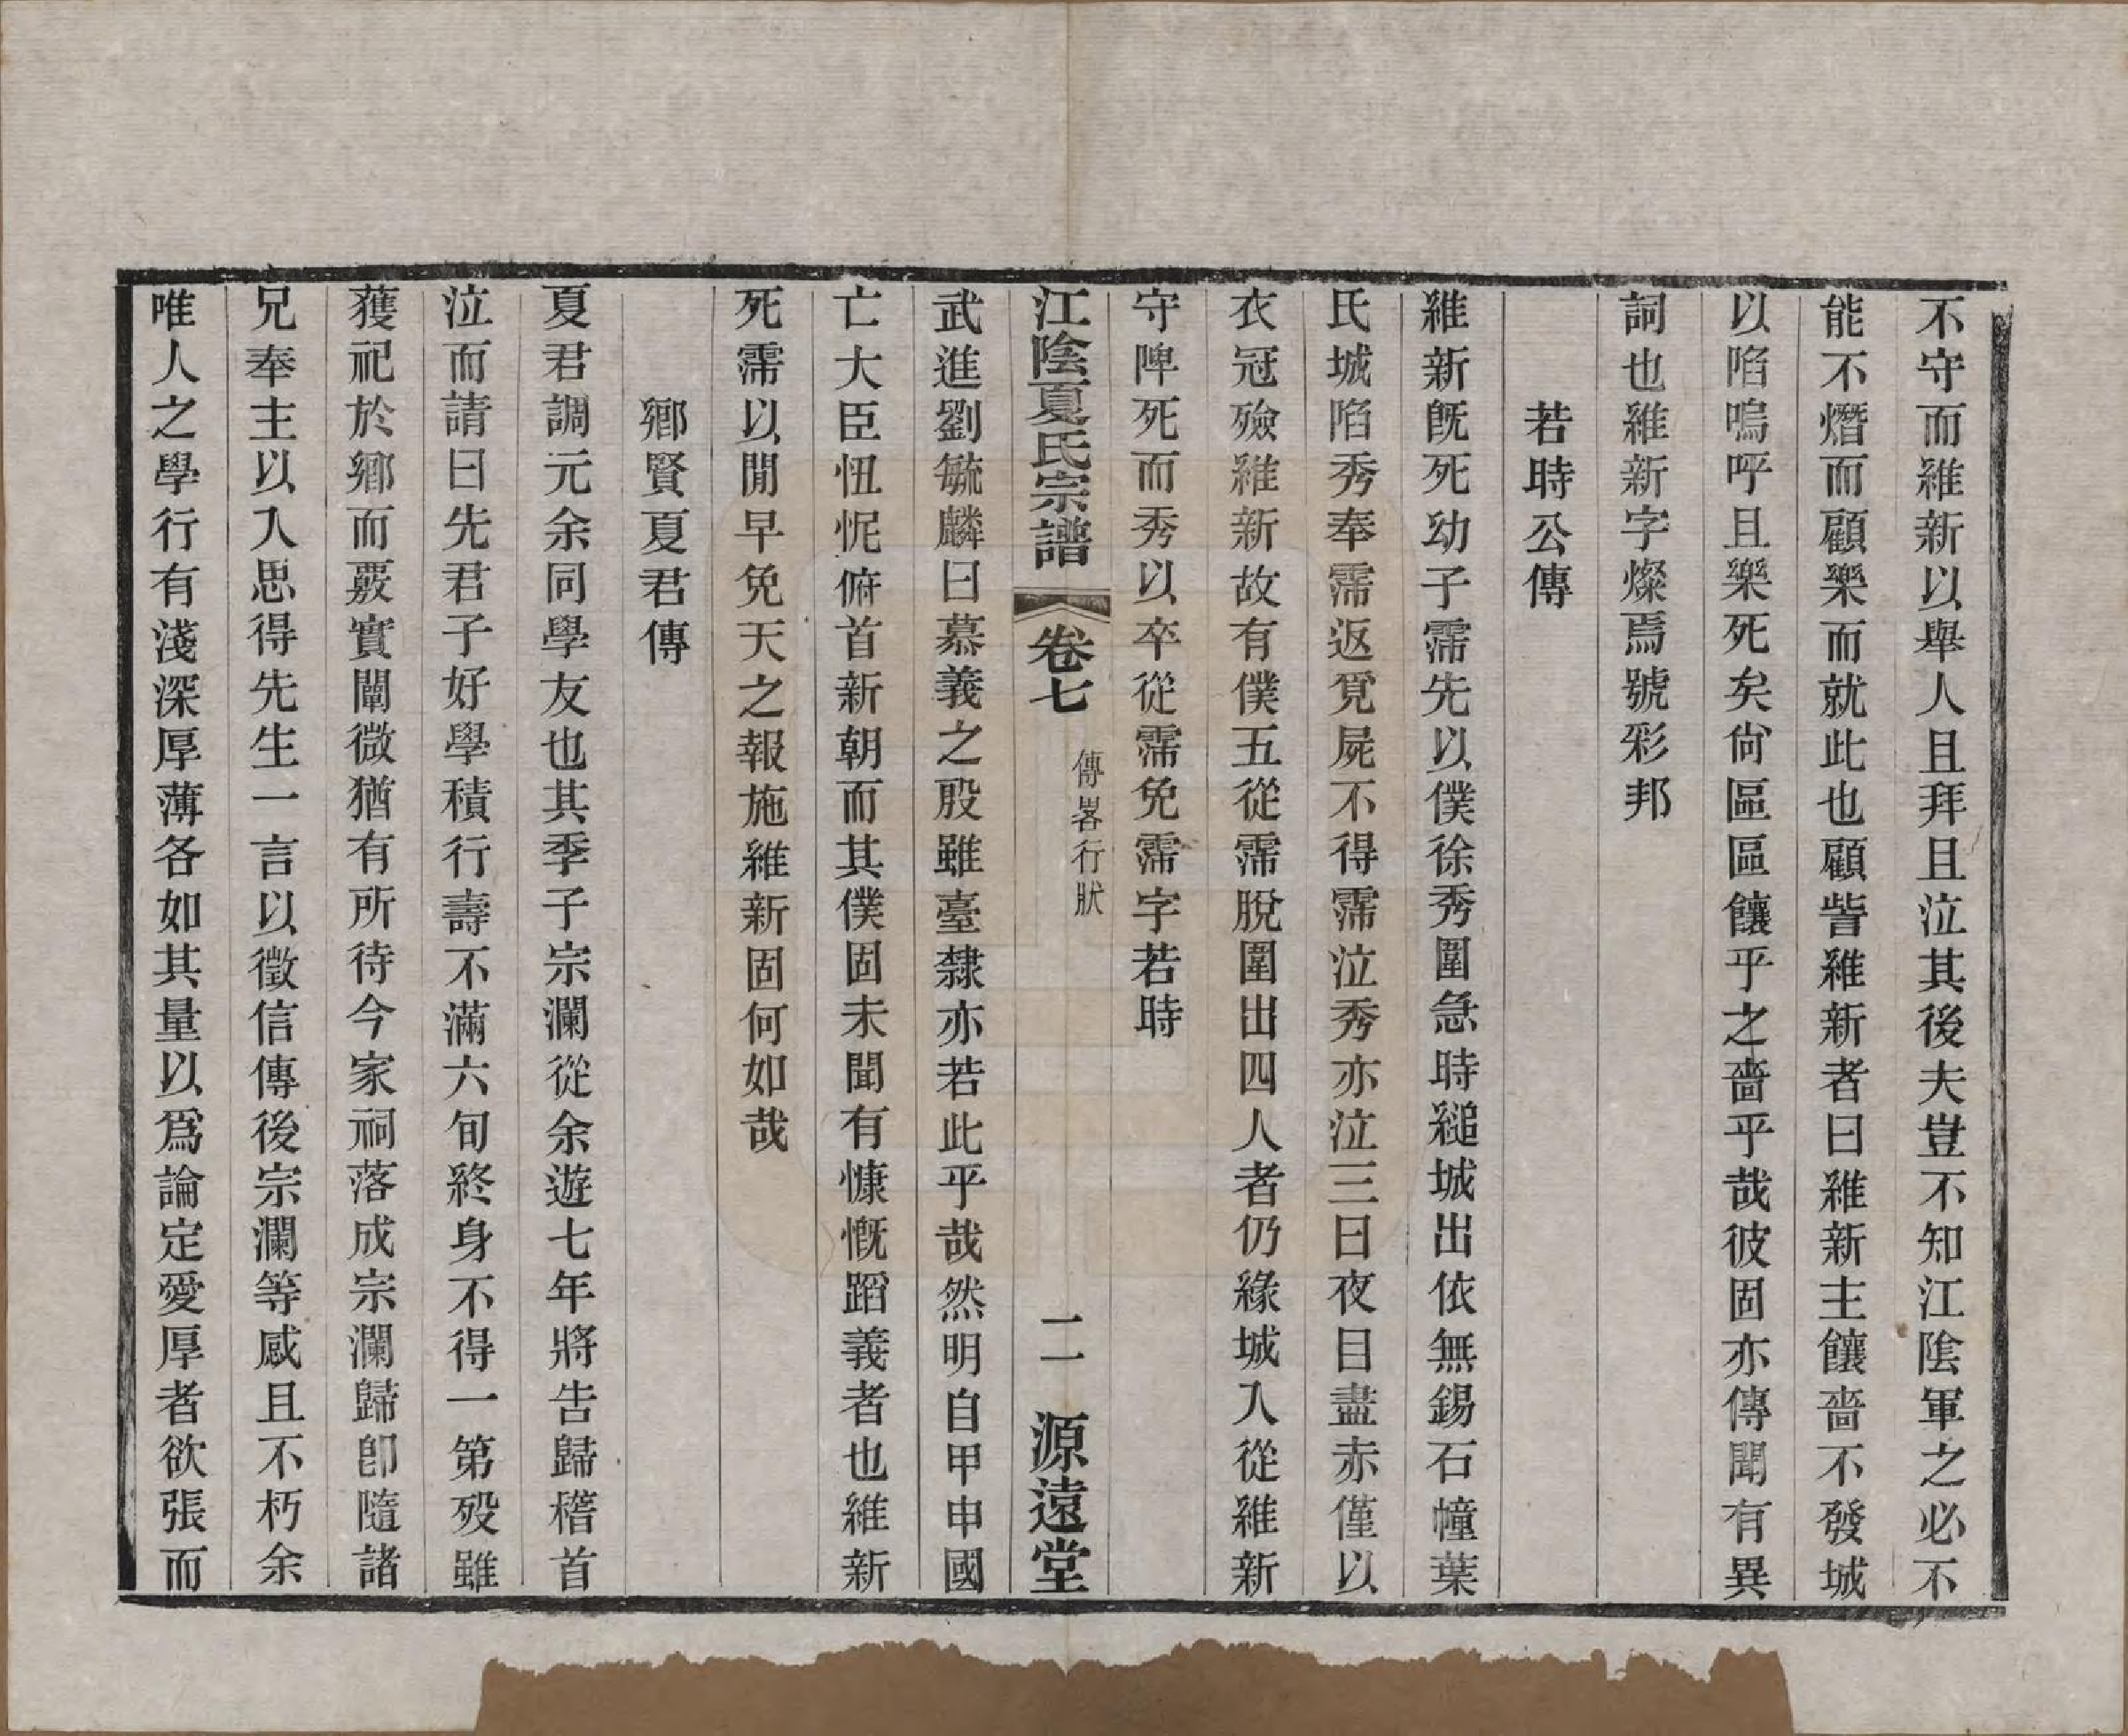 不守而維新以舉人且拜且泣其後夫豈不知江陰軍之必不
能不熸而顧樂而就此也顧訾維新者曰維新主饟嗇不發城
以陷嗚呼且樂死矣尙區區饟乎之嗇乎哉彼固亦傳聞有異
詞也維新字燦焉號彩邦
若時公傳
維新旣死幼子霈先以僕徐秀圍急時縋城出依無錫石幢葉
氏城陷秀奉霈返覓屍不得霈泣秀亦泣三日夜目盡赤僅以
衣冠殮維新故有僕五從霈脫圍出四人者仍緣城入從維新
守陴死而秀以卒從霈免霈字若時
江陰夏氏宗譜 卷七 傳畧行狀 二 源遠堂
武進劉毓麟曰慕義之殷雖臺隸亦若此乎哉然明自甲申國
亡大臣忸怩俯首新朝而其僕固未聞有慷慨蹈義者也維新
死霈以閒早免天之報施維新固何如哉
鄉賢夏君傳
夏君調元余同學友也其季子宗瀾從余遊七年將告歸稽首
泣而請曰先君子好學積行壽不滿六旬終身不得一第歿雖
獲祀於鄉而覈實闡微猶有所待今家祠落成宗瀾歸卽隨諸
兄奉主以入思得先生一言以徵信傳後宗瀾等感且不朽余
唯人之學行有淺深厚薄各如其量以爲論定愛厚者欲張而